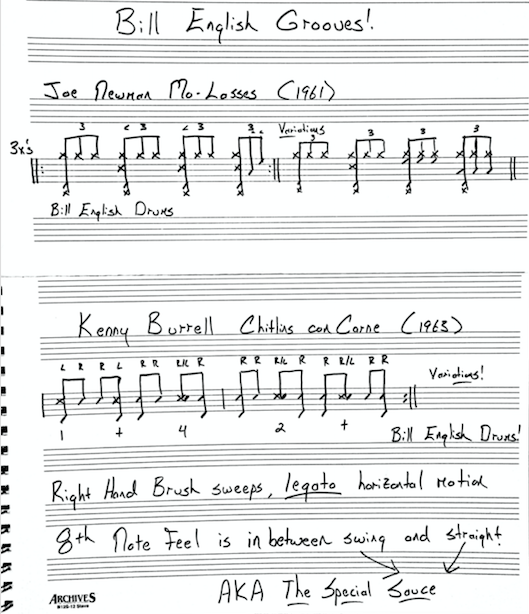 Bill English Grooves!
Joe Newman Mo-Lasses (1961)
3 < 3 < 3 3 Variations 3 3 3 3
3x's
Bill English Drums
Kenny Burrell Chitlins con Carne (1963)
L R R L R R R/L R R R R/L R R R/L R R
Variations!
1 + 4 2 +
Bill English Drums!
Right Hand Brush sweeps, legato horizontal motion
8th Note Feel is in between swing and straight
AKA The Special Sauce
ARCHIVES